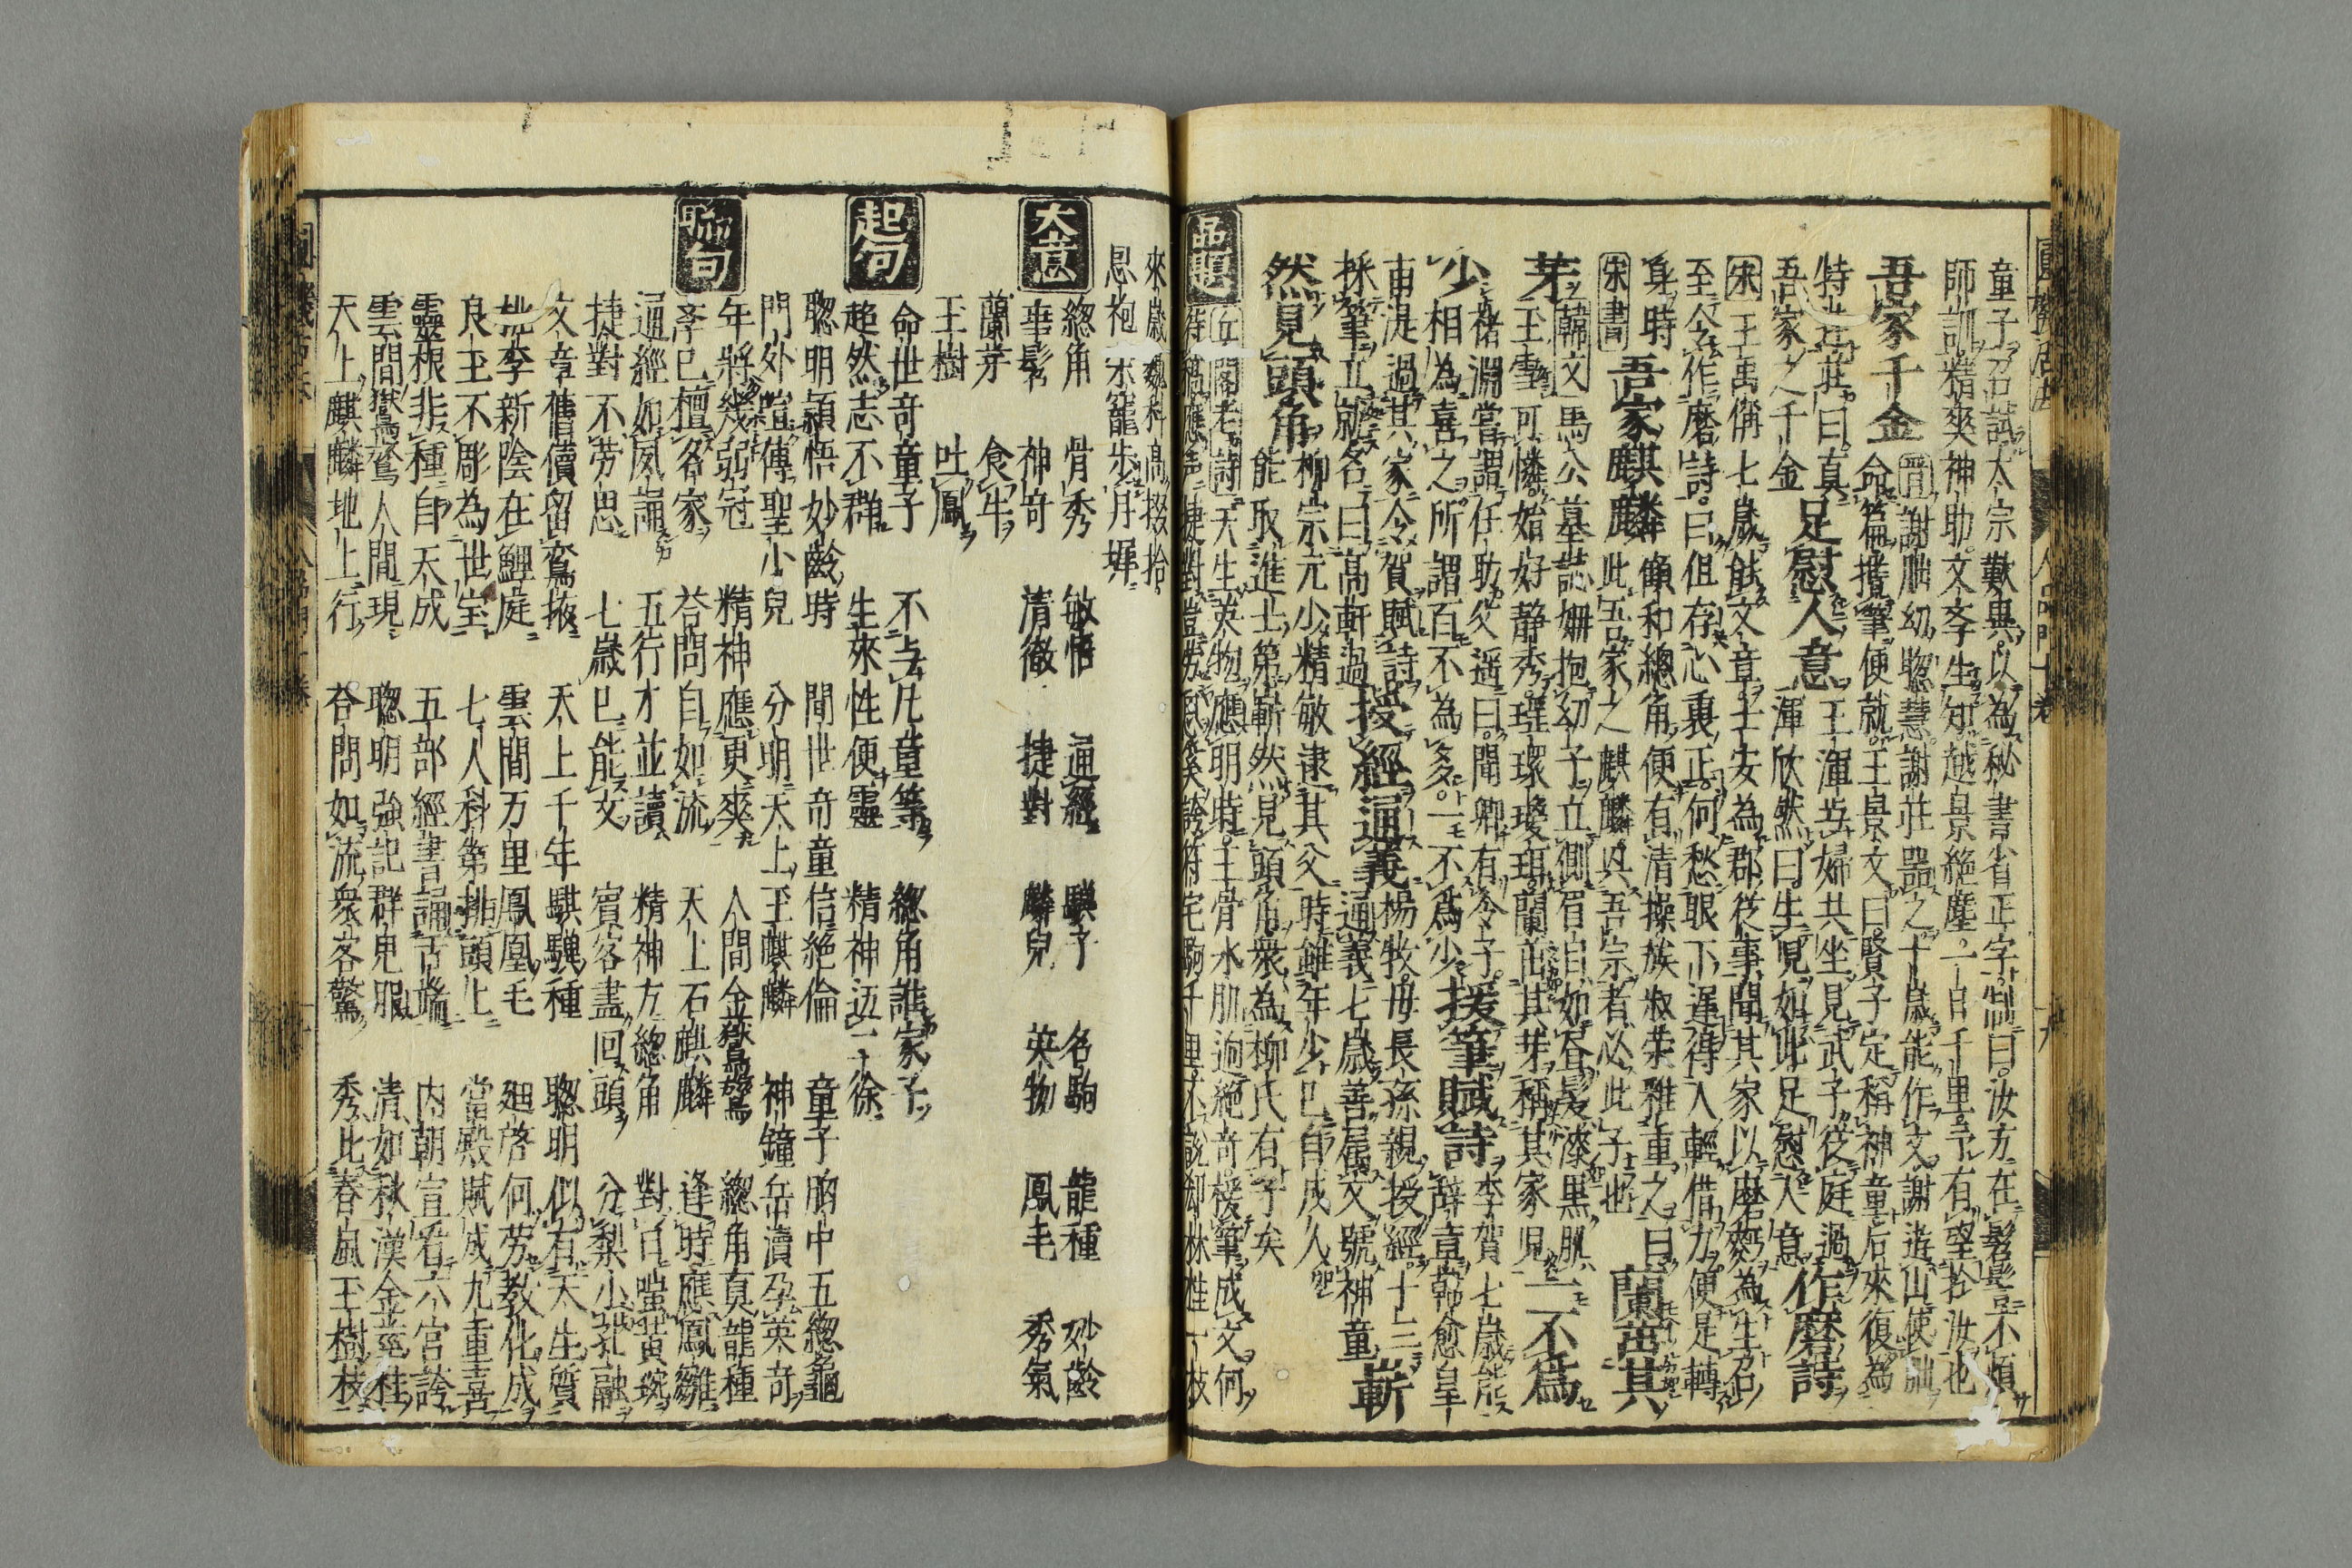 童子召試太宗歎異以為秘書省正字制曰汝方在髫齔不煩
師訓精爽神助文李生知越景絕塵一日千里予有望於汝也
吾家千金 晉謝朏幼聰慧謝莊器之十歲能作文謝莊山使朏
命篇攬筆便就王景文曰賢子定稱神童后來復為
特達莊曰真吾家之千金
足慰人意 王渾与婦共坐見武子從庭過
渾欣然曰生児如此足慰人意
作磨詩
宋王禹偁七歲能文章士安為郡從事聞其家以磨麪為生召
至令作磨詩曰但存心裏正何愁眼下遲得人輕借力便是轉
身時
吾家麒麟 顧和總角便有清操族叔荣雅重之曰
此吾家之麒麟兴吾宗者必此子也
宋書
蘭茁其
芽 韓文馬公墓誌姍抱幼子立側眉目如畫髮漆黒肌
玉雪可憐始好静秀瑤環瑜珥蘭茁其芽稱其家児
一不為
少 褚淵嘗謂任昉父遥曰聞卿有令子
相為喜之所謂百不為多一不為少
援筆賦詩 李賀七歲能
辞章韓愈皇
甫湜過其家令賀賦詩
採筆立就名曰高軒過
授經通義 楊牧母長孫親授經十三
通義七歲善属文號神童
嶄
然見頭角 柳宗元少精敏逮其父時雖年少已自成人
能取進士第嶄然見頭角衆為柳氏有子矣
品題
丘閣老詩 天生英物應明時玉骨水肌逈絕奇援筆成文何
待稿應声捷對豈労思 符宅駒千里 林桂一枝
來歲巍科高掇拾
恩袍 寵步月
大意
總角 骨秀 敏悟 通經 驥子 名駒 龍種 妙齡
垂髫 神奇 清徹 捷對 麟兒 英物 鳳毛 秀氣
蘭芽 食牛
玉樹 吐鳳
起句
命世奇童子 不与凡童等 總角誰家子
超然志不群 生來性便靈 精神迈一徐
聰明穎悟妙齡時 間世奇童信絕倫 童子胸中五總龜
門外喧傳聖小兒 分明天上玉麒麟 神鐘岳瀆孕英奇
年將幾弱冠 精神應更爽 人間金鸑鷟 總角真龍種
聮句
李已擅各家 荅問自如流 天上石麒麟 逢時應鳳雛
通經如夙誦 五行才並讀 精神方總角 對日嗤黄琬
捷對不劳思 七歲已能文 賓客盡回頭 分梨小孔融
文章舊價留鴛掖 天上千年騏驥種 聰明似有天生質
桃李新陰在鯉庭 雲間万里鳳凰毛 廸啓何劳教化成
良玉不彫為世宝 七人科第排頭上 當殿賦成九重喜
靈根非種自天成 五部經書誦舌端 内朝宣看六宮誇
雲間鸑鷟人間現 聰明強記群兒服 清如秋漢金莖桂
天上麒麟地上行 荅問如流衆客驚 秀比春風玉樹枝